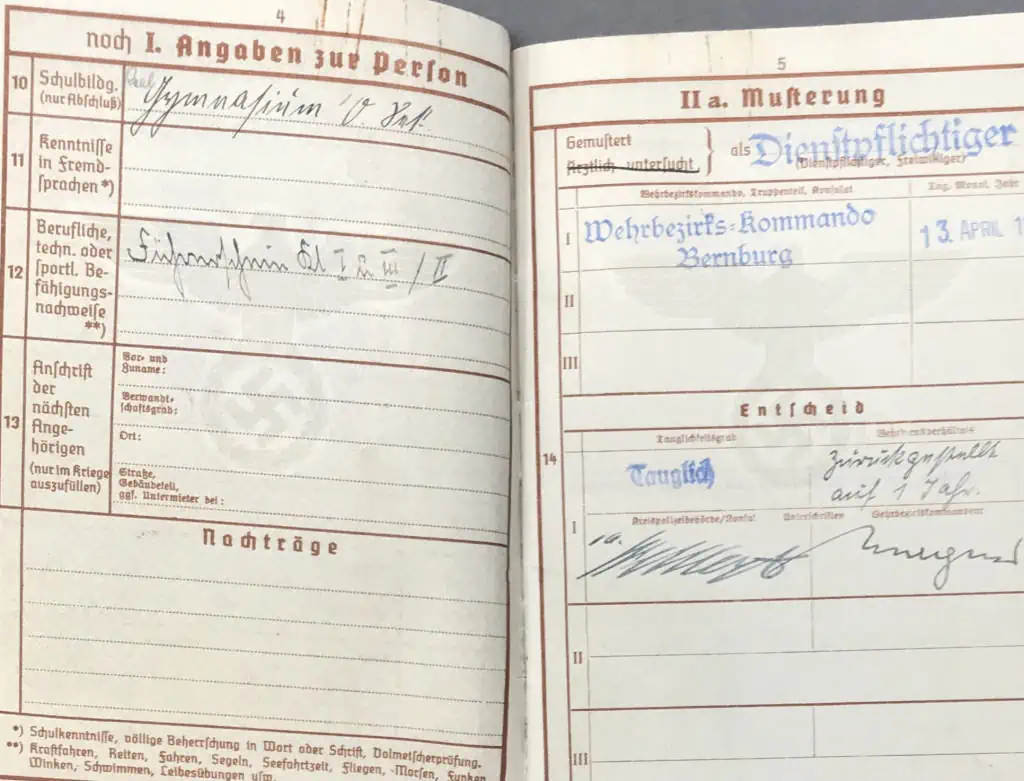 4
noch I. Angaben zur Person
10
Schulbildg.
(nur Abschluß)
Real
Gymnasium O. Sek.
11
Kenntnisse
in Fremd-
sprachen *)
12
Berufliche,
techn. oder
sportl. Be-
fähigungs-
nachweise
**)
Führerschein Kl I u III / II
13
Anschrift
der
nächsten
Ange-
hörigen
(nur im Kriege
auszufüllen)
Vor- und
Zuname:
Verwandt-
schaftsgrad:
Ort:
Straße,
Gebäudeteil,
ggf. Untermieter bei:
Nachträge
*) Schulkenntnisse, völlige Beherrschung in Wort oder Schrift, Dolmetscherprüfung.
**) Kraftfahren, Reiten, Fahren, Segeln, Seefahrtzeit, Fliegen, Morsen, Funken
Winken, Schwimmen, Leibesübungen usw.
5
IIa. Musterung
Gemustert
ärztlich untersucht
als Dienstpflichtiger
(Dienstpflichtiger, Freiwilliger)
Wehrbezirkskommando, Truppenteil, Konsulat
Tag, Monat, Jahr
I
Wehrbezirks-Kommando
Bernburg
13. APRIL 1
II
III
Entscheid
14
Tauglichkeitsgrad
Wehrdienstverhältnis
Tauglich
zurückgestellt
auf 1 Jahr.
I
Kreispolizeibehörde/Konsul
Unterschriften
Wehrbezirkskommandeur
II
III